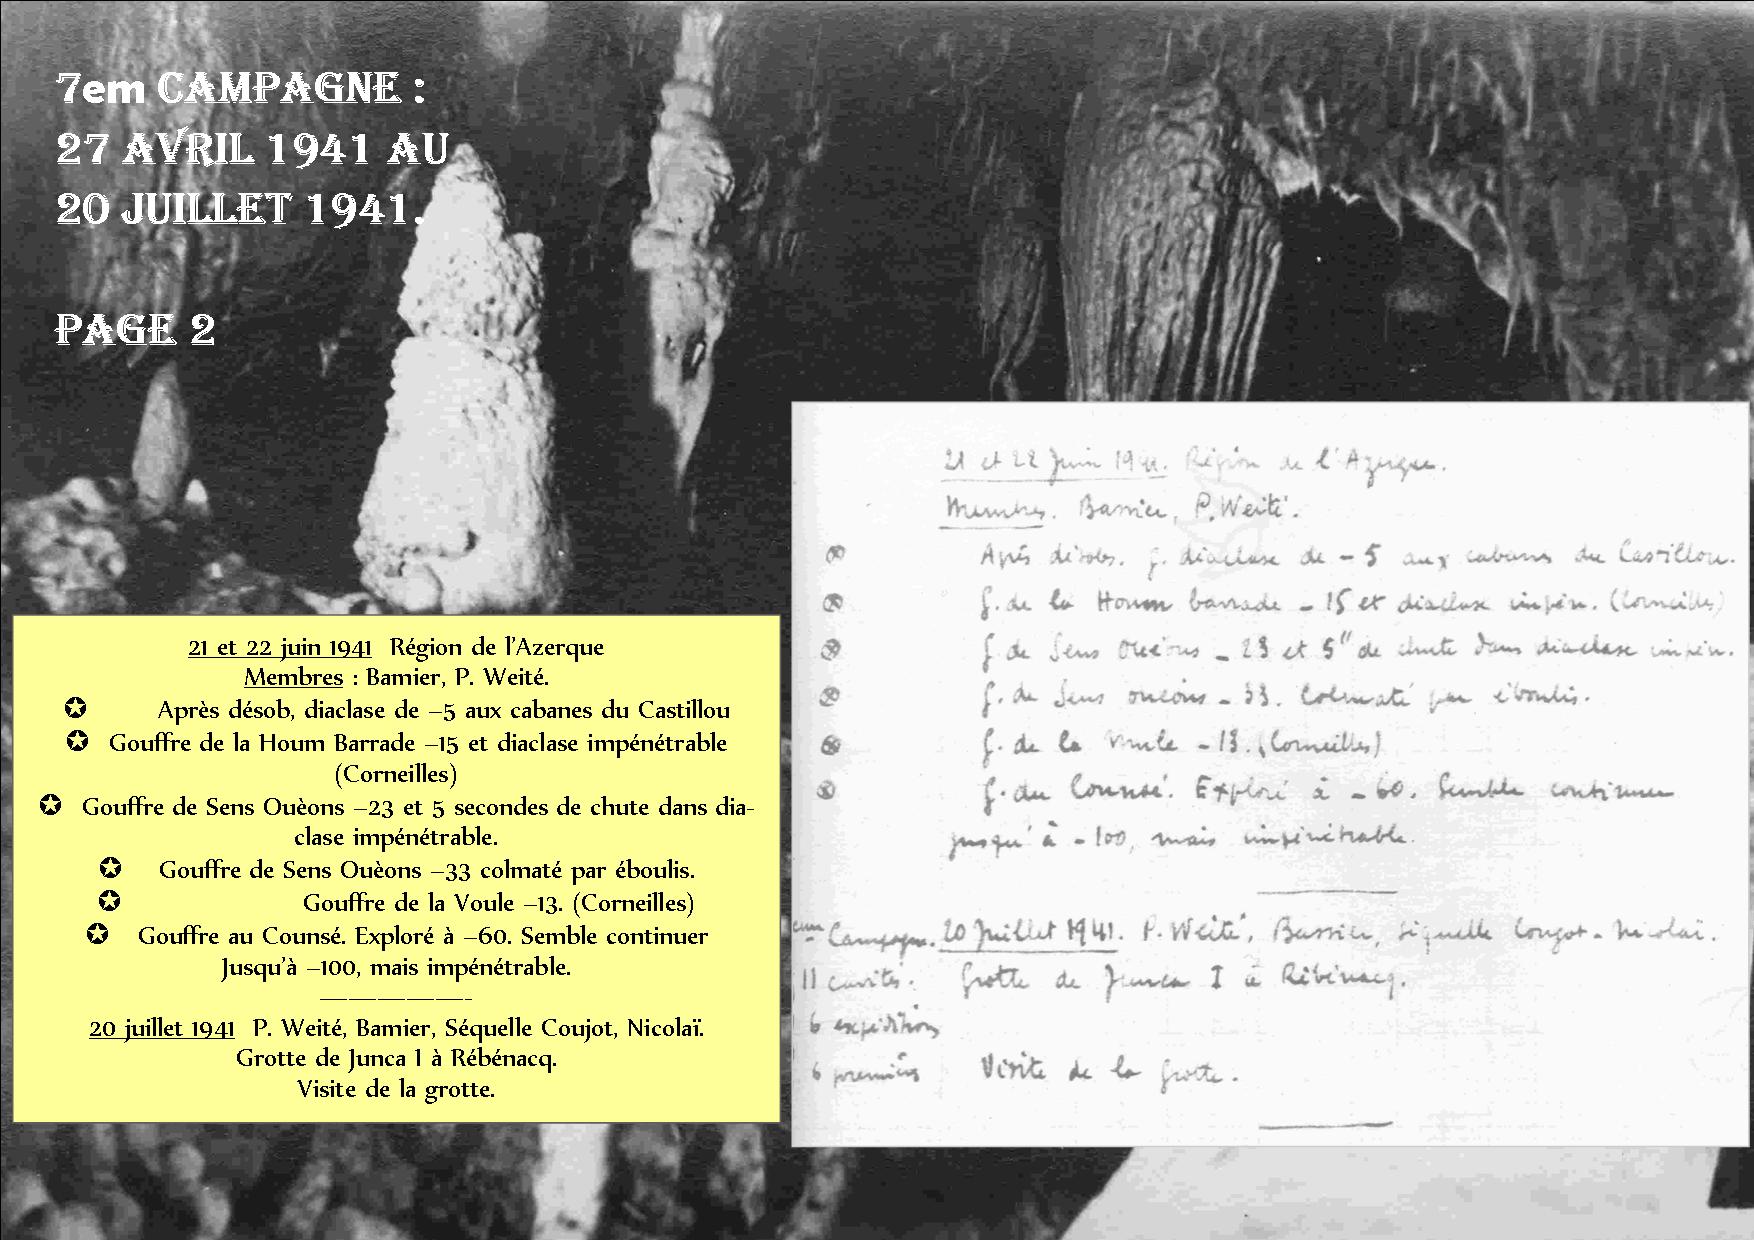 7em CAMPAGNE :
27 AVRIL 1941 AU
20 JUILLET 1941.
PAGE 2
21 et 22 juin 1941 Région de l'Azerque
Membres : Bamier, P. Weité.
✪ Après désob, diaclase de –5 aux cabanes du Castillou
✪ Gouffre de la Houm Barrade –15 et diaclase impénétrable
(Corneilles)
✪ Gouffre de Sens Ouèons –23 et 5 secondes de chute dans dia-
clase impénétrable.
✪ Gouffre de Sens Ouèons –33 colmaté par éboulis.
✪ Gouffre de la Voule –13. (Corneilles)
✪ Gouffre au Counsé. Exploré à –60. Semble continuer
Jusqu'à –100, mais impénétrable.
————————-
20 juillet 1941 P. Weité, Bamier, Séquelle Coujot, Nicolaï.
Grotte de Junca 1 à Rébénacq.
Visite de la grotte.
21 et 22 Juin 1941. Région de l'Azerque.
Membres. Bamier, P. Weité.
Après désobs. g. diaclase de – 5 aux cabanes du Castillou.
g. de la Houm barrade – 15 et diaclase impén. (Corneilles)
g. de Sens – 23 et 5" de chute dans diaclase impén.
g. de Sens – 33. Colmaté par éboulis.
g. de la – 13. (Corneilles)
g. du Counsé. Exploré à – 60. Semble continuer
jusqu'à – 100, mais impénétrable.
Campagne. 20 Juillet 1941. P. Weité, Bamier, Coujot – Nicolaï.
11 cavités. Grotte de Junca I à Rébénacq.
6 expéditions
6 premières Visite de la grotte.